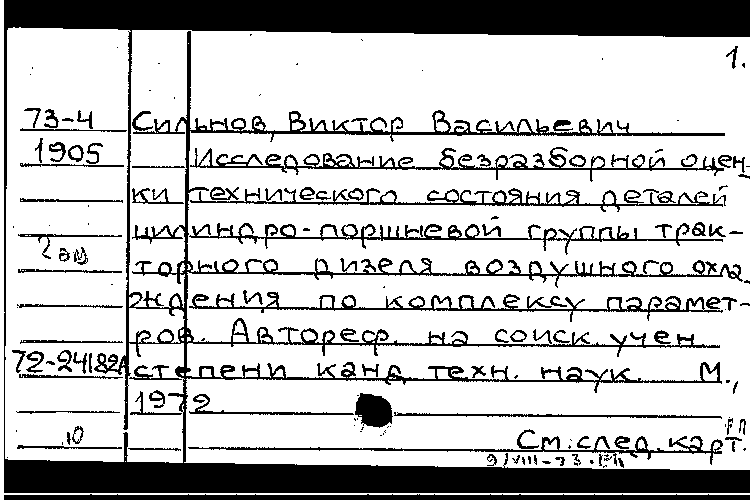 1.
73-4 Сильнов, Виктор Васильевич
1905 Исследование безразборной оцен-
ки технического состояния деталей
цилиндро-поршневой группы трак-
2 эм
торного дизеля воздушного охла-
ждения по комплексу парамет-
ров. Автореф. на соиск. учен.
72-24182А степени канд. техн. наук. М.,
1972.
10 См. след. карт.